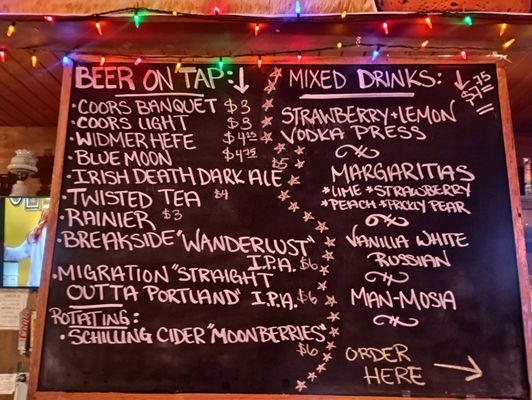 BEER ON TAP: ↓
• COORS BANQUET $3
• COORS LIGHT $3
• WIDMER HEFE $4.75
• BLUE MOON $4.75
• IRISH DEATH DARK ALE $5
• TWISTED TEA $4
• RAINIER $3
• BREAKSIDE "WANDERLUST"
I.P.A. $6
• MIGRATION "STRAIGHT
OUTTA PORTLAND" I.P.A. $6
ROTATING:
• SCHILLING CIDER "MOONBERRIES"
$6
MIXED DRINKS: ↓ $7.75
STRAWBERRY + LEMON
VODKA PRESS
MARGIARITIAS
*LIME *STRAWBERRY
*PEACH *PRICKLY PEAR
VANILLA WHITE
RUSSIAN
MAN-MOSIA
ORDER
HERE →